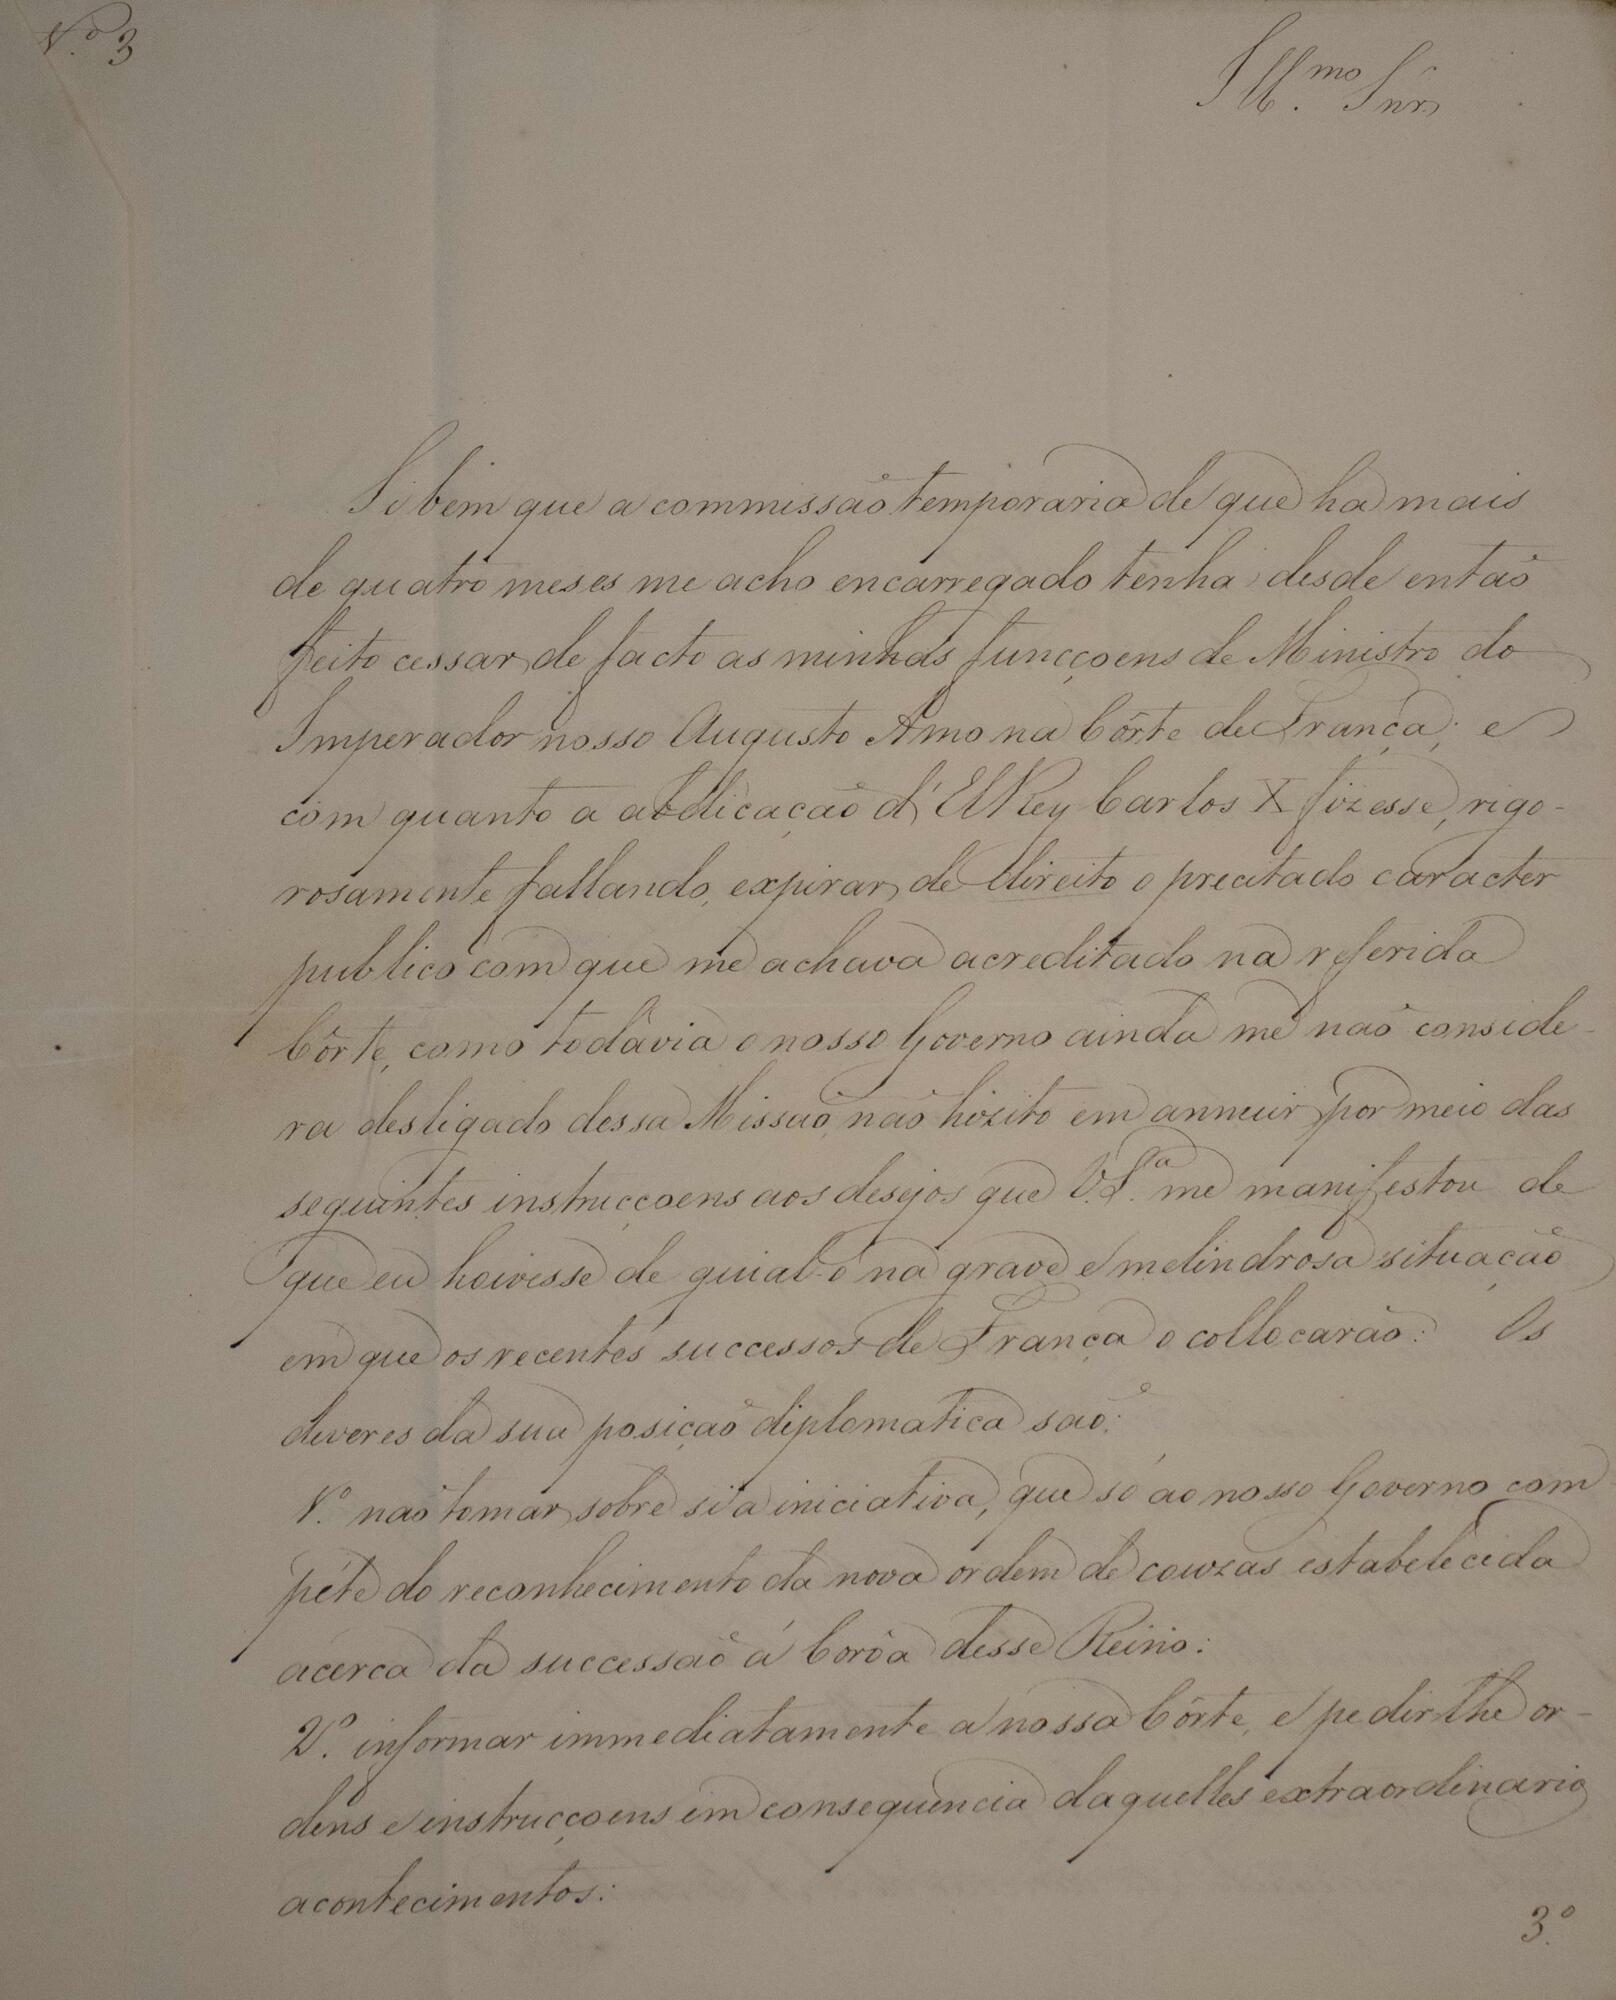 N.º 3
Ill.mo Snr.
Si bem que a commissão temporaria de que ha mais
de quatro meses me acho encarregado tenha desde então
feito cessar de facto as minhas funcçoens de Ministro do
Imperador nosso Augusto Amo na Côrte de França; e
com quanto a abdicação d'El Rey Carlos X fizesse, rigo-
rosamente fallando, expirar de direito o precitado caracter
publico com que me achava acreditado na referida
Côrte, como todavia o nosso Governo ainda me não conside-
ra desligado dessa Missão, não hézito em annuir por meio das
seguintes instrucçoens aos desejos que V. S.ª me manifestou de
que eu houvesse de guial-o na grave e melindrosa situação
em que os recentes successos de França o collocarão: Os
deveres da sua posição diplomatica são:
1.º não tomar sobre si a iniciativa, que só ao nosso Governo com
péte do reconhecimento da nova ordem de couzas estabelecida
ácerca da successão á Corôa desse Reino:
2.º informar immediatamente a nossa Côrte, e pedir lhe or-
dens e instrucçoens em consequencia daquelles extraordinarios
acontecimentos:
3.º